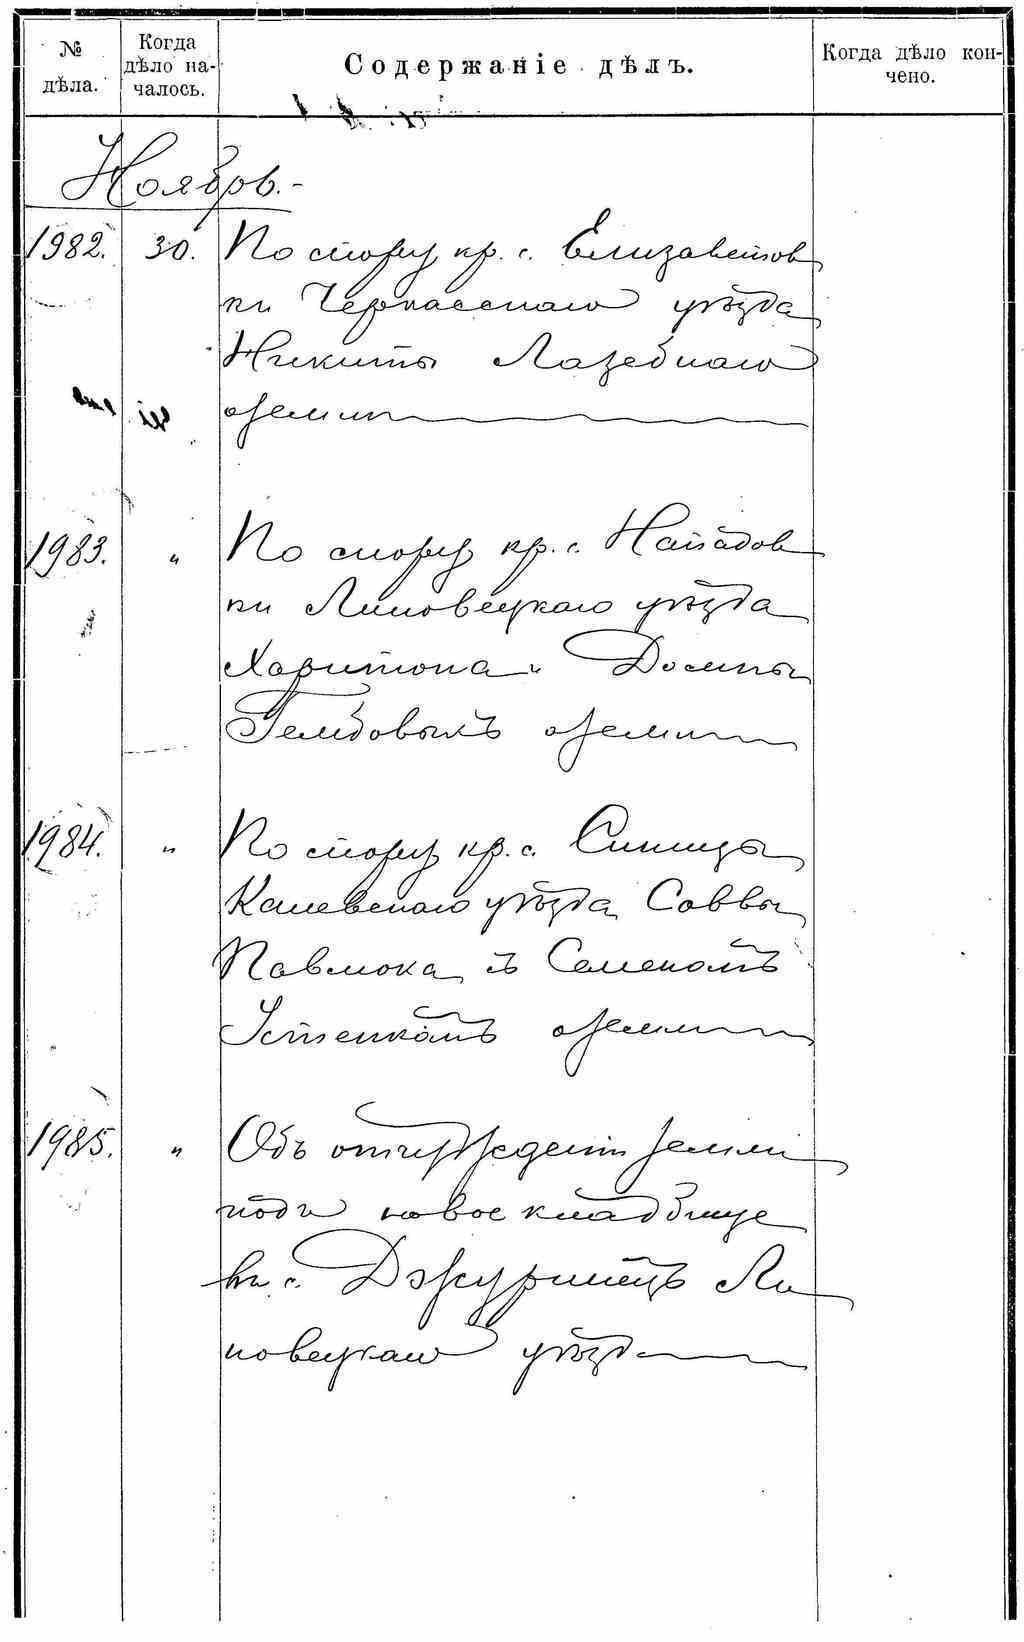 № дѣла.
Когда дѣло на-
чалось.
Содержаніе дѣлъ.
Когда дѣло кон-
чено.
Ноябрь.-
1982. 30. По спору кр. с. Елизаветов
ки Черкасскаго уѣзда
Никиты Лазебнаго
о земли
1983. " По спору кр. с. Нападов
ки Липовецкаго уѣзда
Харитона и Домны
о земли
1984. " По спору кр. с. Синицы
Каневскаго уѣзда Саввы
Павлюка съ Семеномъ
Устенкомъ о земли
1985. " Объ отчужденіи земли
подъ новое кладбище
въ с. Джуринецъ Ли
повецкаго уѣзда